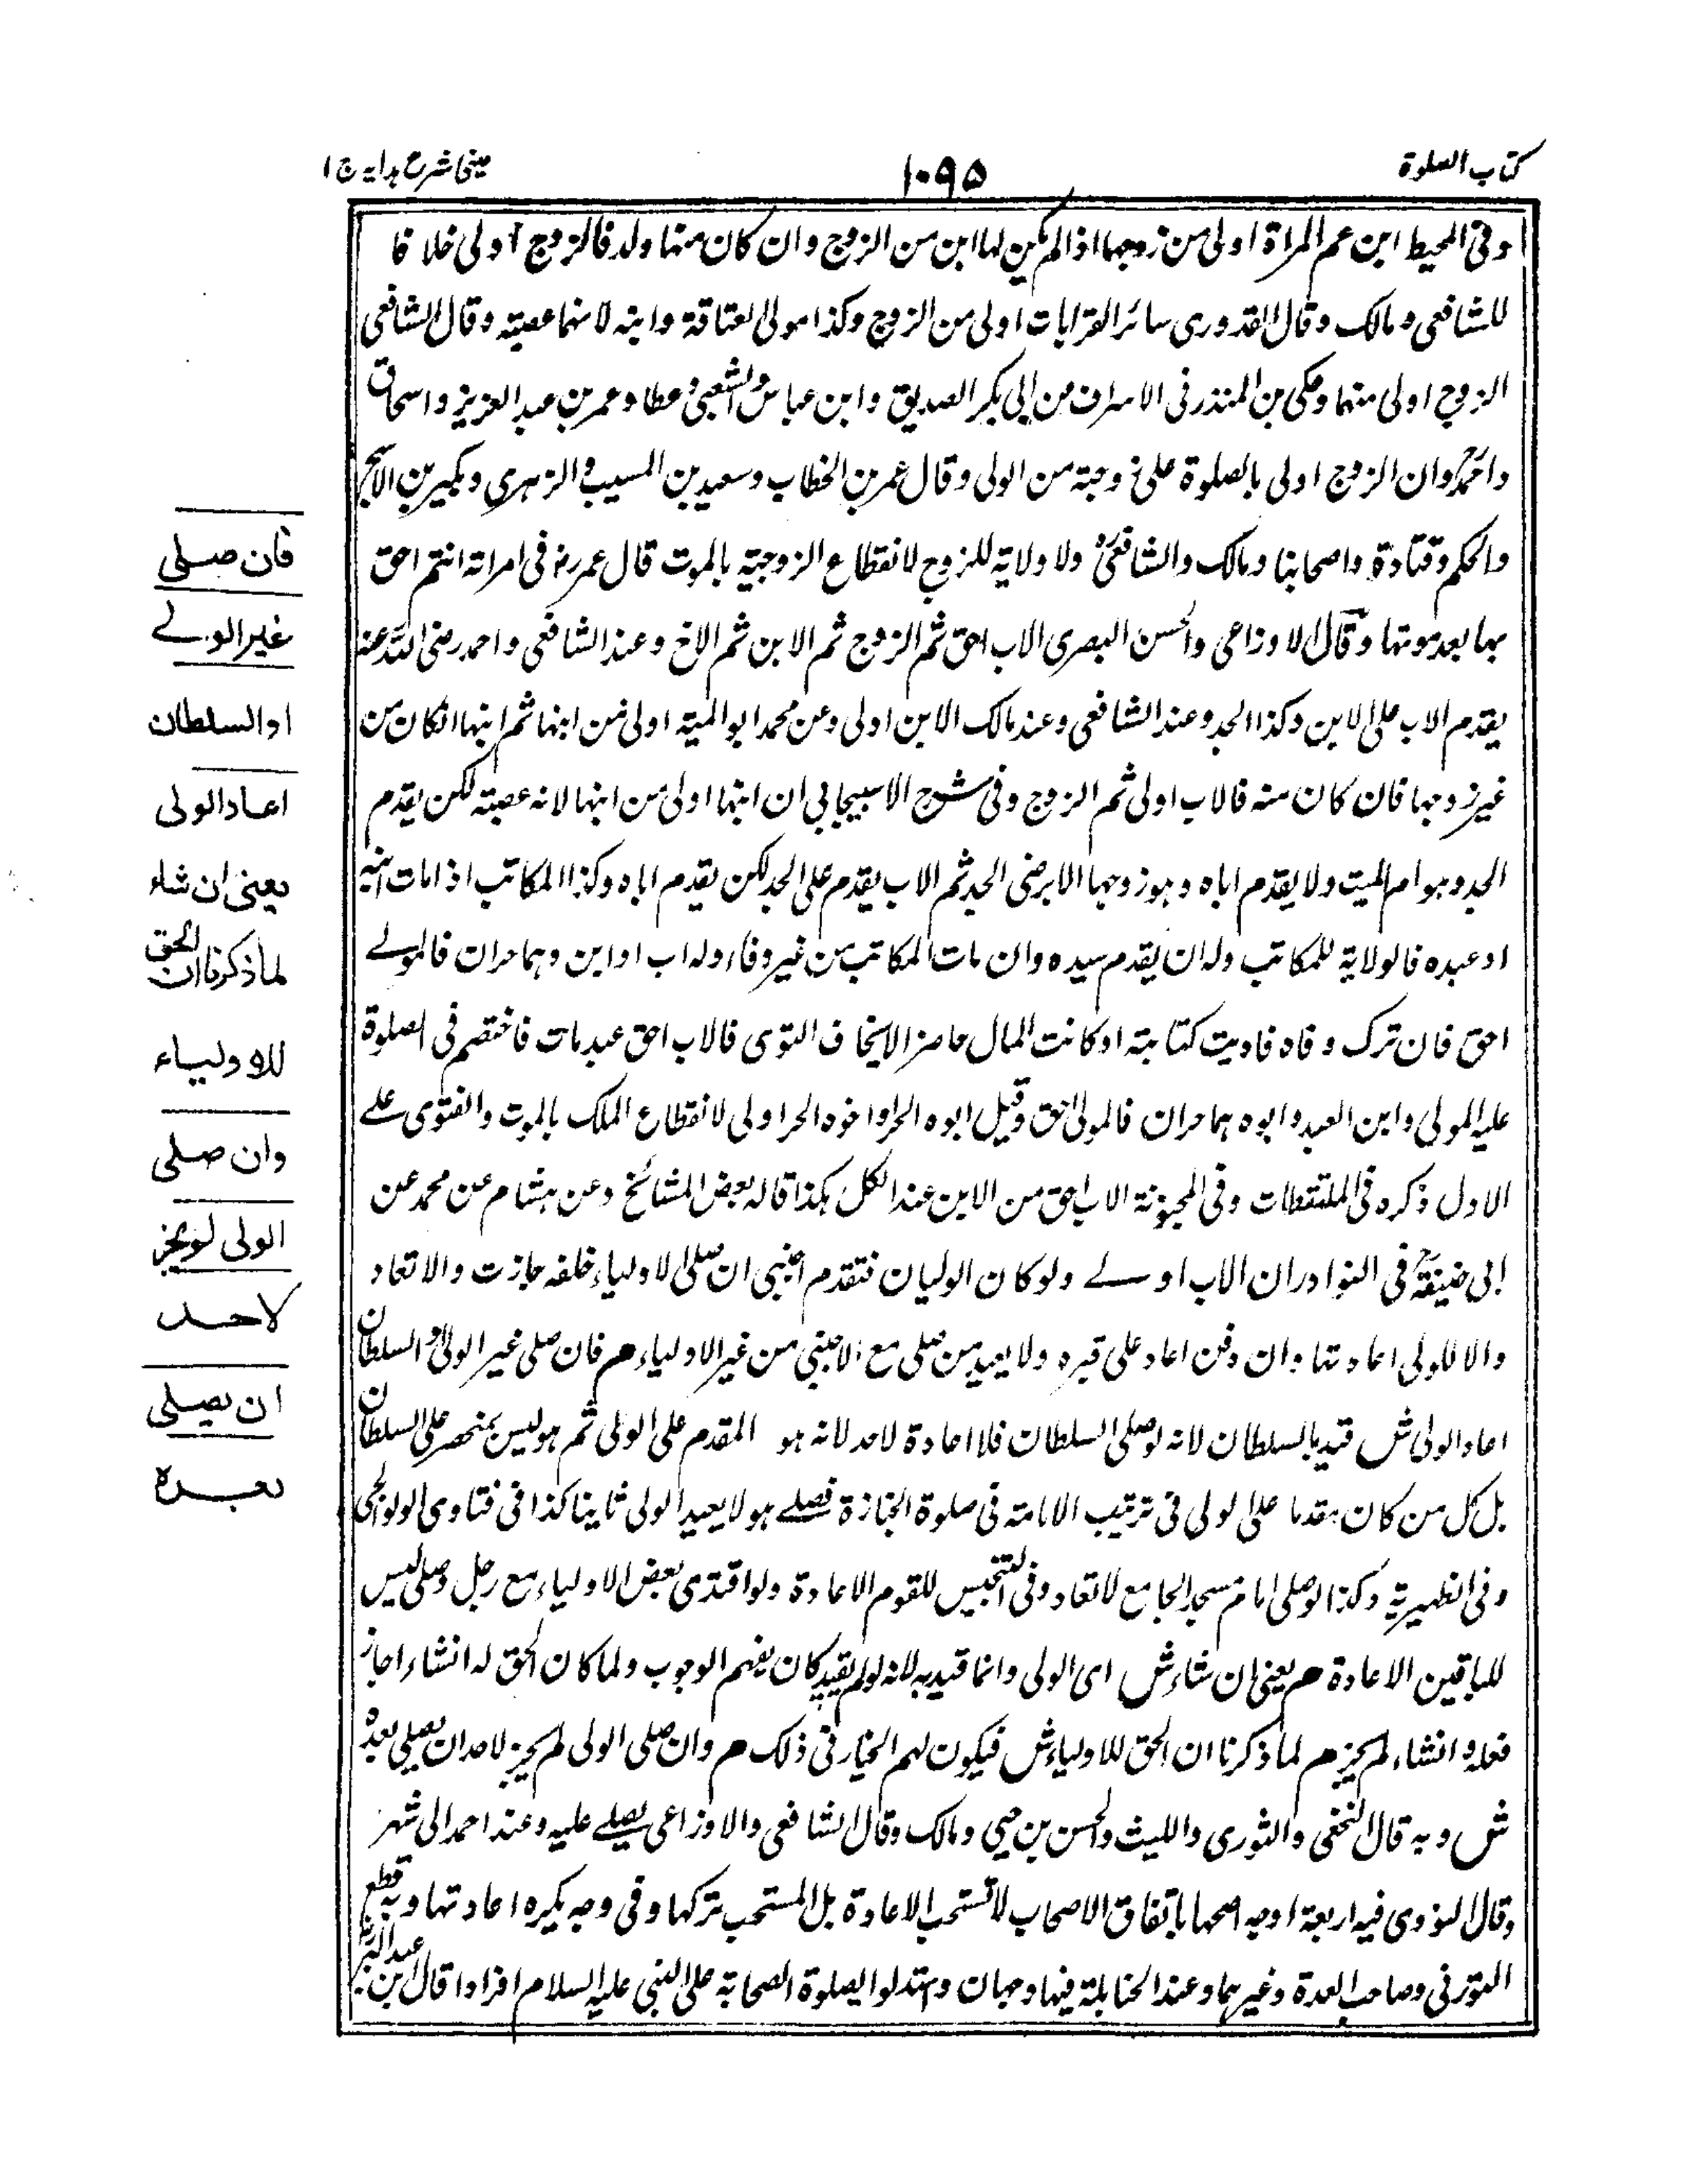 كتاب الصلوة
١٠٩٥
عینی شرح ہدایہ ج ١
وفى المحيط ابن عم المراة اولى من زوجها اذا لم يكن لها ابن من الزوج وان كان منها ولد فالزوج اولى خلافا
للشافعى ومالك وقال القدورى سائر القرابات اولى من الزوج وكذا مولى العتاقة وابنه لانهما عصبته وقال الشافعى
الزوج اولى منهما وحكى بن المنذر فى الاسراف من ابى بكر الصديق وابن عباس والشعبى وعطا وعمر بن عبد العزيز واسحاق
واحمد وان الزوج اولى بالصلوة على زوجته من الولى وقال عمر بن الخطاب وسعيد بن المسيب والزهرى وبكير بن الاشج
والحكم وقتادة واصحابنا ومالك والشافعى ولا ولاية للزوج لانقطاع الزوجية بالموت قال عمر رض فى امراته انتم احق
بها بعد موتها وقال الاوزاعى والحسن البصرى الاب احق ثم الزوج ثم الابن ثم الاخ وعند الشافعى واحمد رضى الله عنه
يقدم الاب على الابن وكذا الجد وعند الشافعى وعند مالك الابن اولى وعن محمد ابو الميتة اولى من ابنها ثم ابنها انكان من
غير زوجها فان كان منه فالاب اولى ثم الزوج وفى شرح الاسبيجابى ان ابنها اولى من ابنها لانه عصبته لكن يقدم
الجد وهو ام الميت ولا يقدم اباه وهو زوجها الا برضى الجد ثم الاب يقدم على الجد لكن يقدم اباه وكذا المكاتب اذا مات ابنه
او عبده فالولاية للمكاتب وله ان يقدم سيده وان مات المكاتب من غير وفاء وله اب او ابن وهما حران فالمولے
احق فان ترك وفاه فاديت كتابته او كانت المال حاضر الايخاف التوى فالاب احق عبد مات فاختصم فى الصلوة
عليه المولى وابن العبد وابوه هما حران فالمولى احق وقيل ابوه الحر او اخوه الحر اولى لانقطاع الملك بالموت والفتوى علے
الاول ذكره فى الملتقطات وفى المجنونة الاب احق من الابن عند الكل هكذا قاله بعض المشائخ وعن هشام عن محمد عن
ابى حنيفة فى النوادر ان الاب اولے ولو كان الوليان فتقدم اجنبى ان صلى الاولياء خلفه جازت والا تعاد
والا للولى اعادتها وان دفن اعاد على قبره ولا يعيد من صلى مع الاجنبى من غير الاولياء م فان صلى غير الولى والسلطان
اعاد الولى ش قيد بالسلطان لانه لو صلى السلطان فلا اعادة لاحد لانه هو المقدم على الولى ثم هو ليس بمنحصر على السلطان
بل كل من كان مقدما على الولى فى ترتيب الامامة فى صلوة الجنازة فصلے هو لا يعيد الولى ثانيا كذا فى فتاوى الولوالجى
وفى الظهيرية وكذا لو صلى امام مسجد الجامع لا تعاد وفى التجنيس للقوم الاعادة ولو اقتدى بعض الاولياء مع رجل وصلى ليس
للباقين الاعادة م يعنى ان شاء ش اى الولى وانما قيد به لانه لو لم يقيد كان يفهم الوجوب ولما كان الحق له انشاء اجاز
فعله وانشاء لم يجز م لما ذكرنا ان الحق للاولياء ش فيكون لهم الخيار فى ذلك م وان صلى الولى لم يجز لاحد ان يصلى بعده
ش وبه قال النخعى والثورى والليث والحسن بن حيى ومالك وقال الشافعى والاوزاعى يصلے عليه وعند احمد الى شهر
وقال النووى فيه اربعة اوجه اصحها باتفاق الاصحاب لا تستحب الاعادة بل المستحب تركها وفى وجه يكره اعادتها وبه قطع
الفورنى وصاحب العدة وغيرهما وعند الحنابلة فيها وجهان واستدلوا بصلوة الصحابة على النبى عليه السلام افرادا قال ابن عبد البر
فان صلى
غير الولے
او السلطان
اعاد الولى
يعنى ان شاء
لما ذكرنا ان الحق
للاولياء
وان صلى
الولى لم يجز
لاحد
ان يصلى
بعده